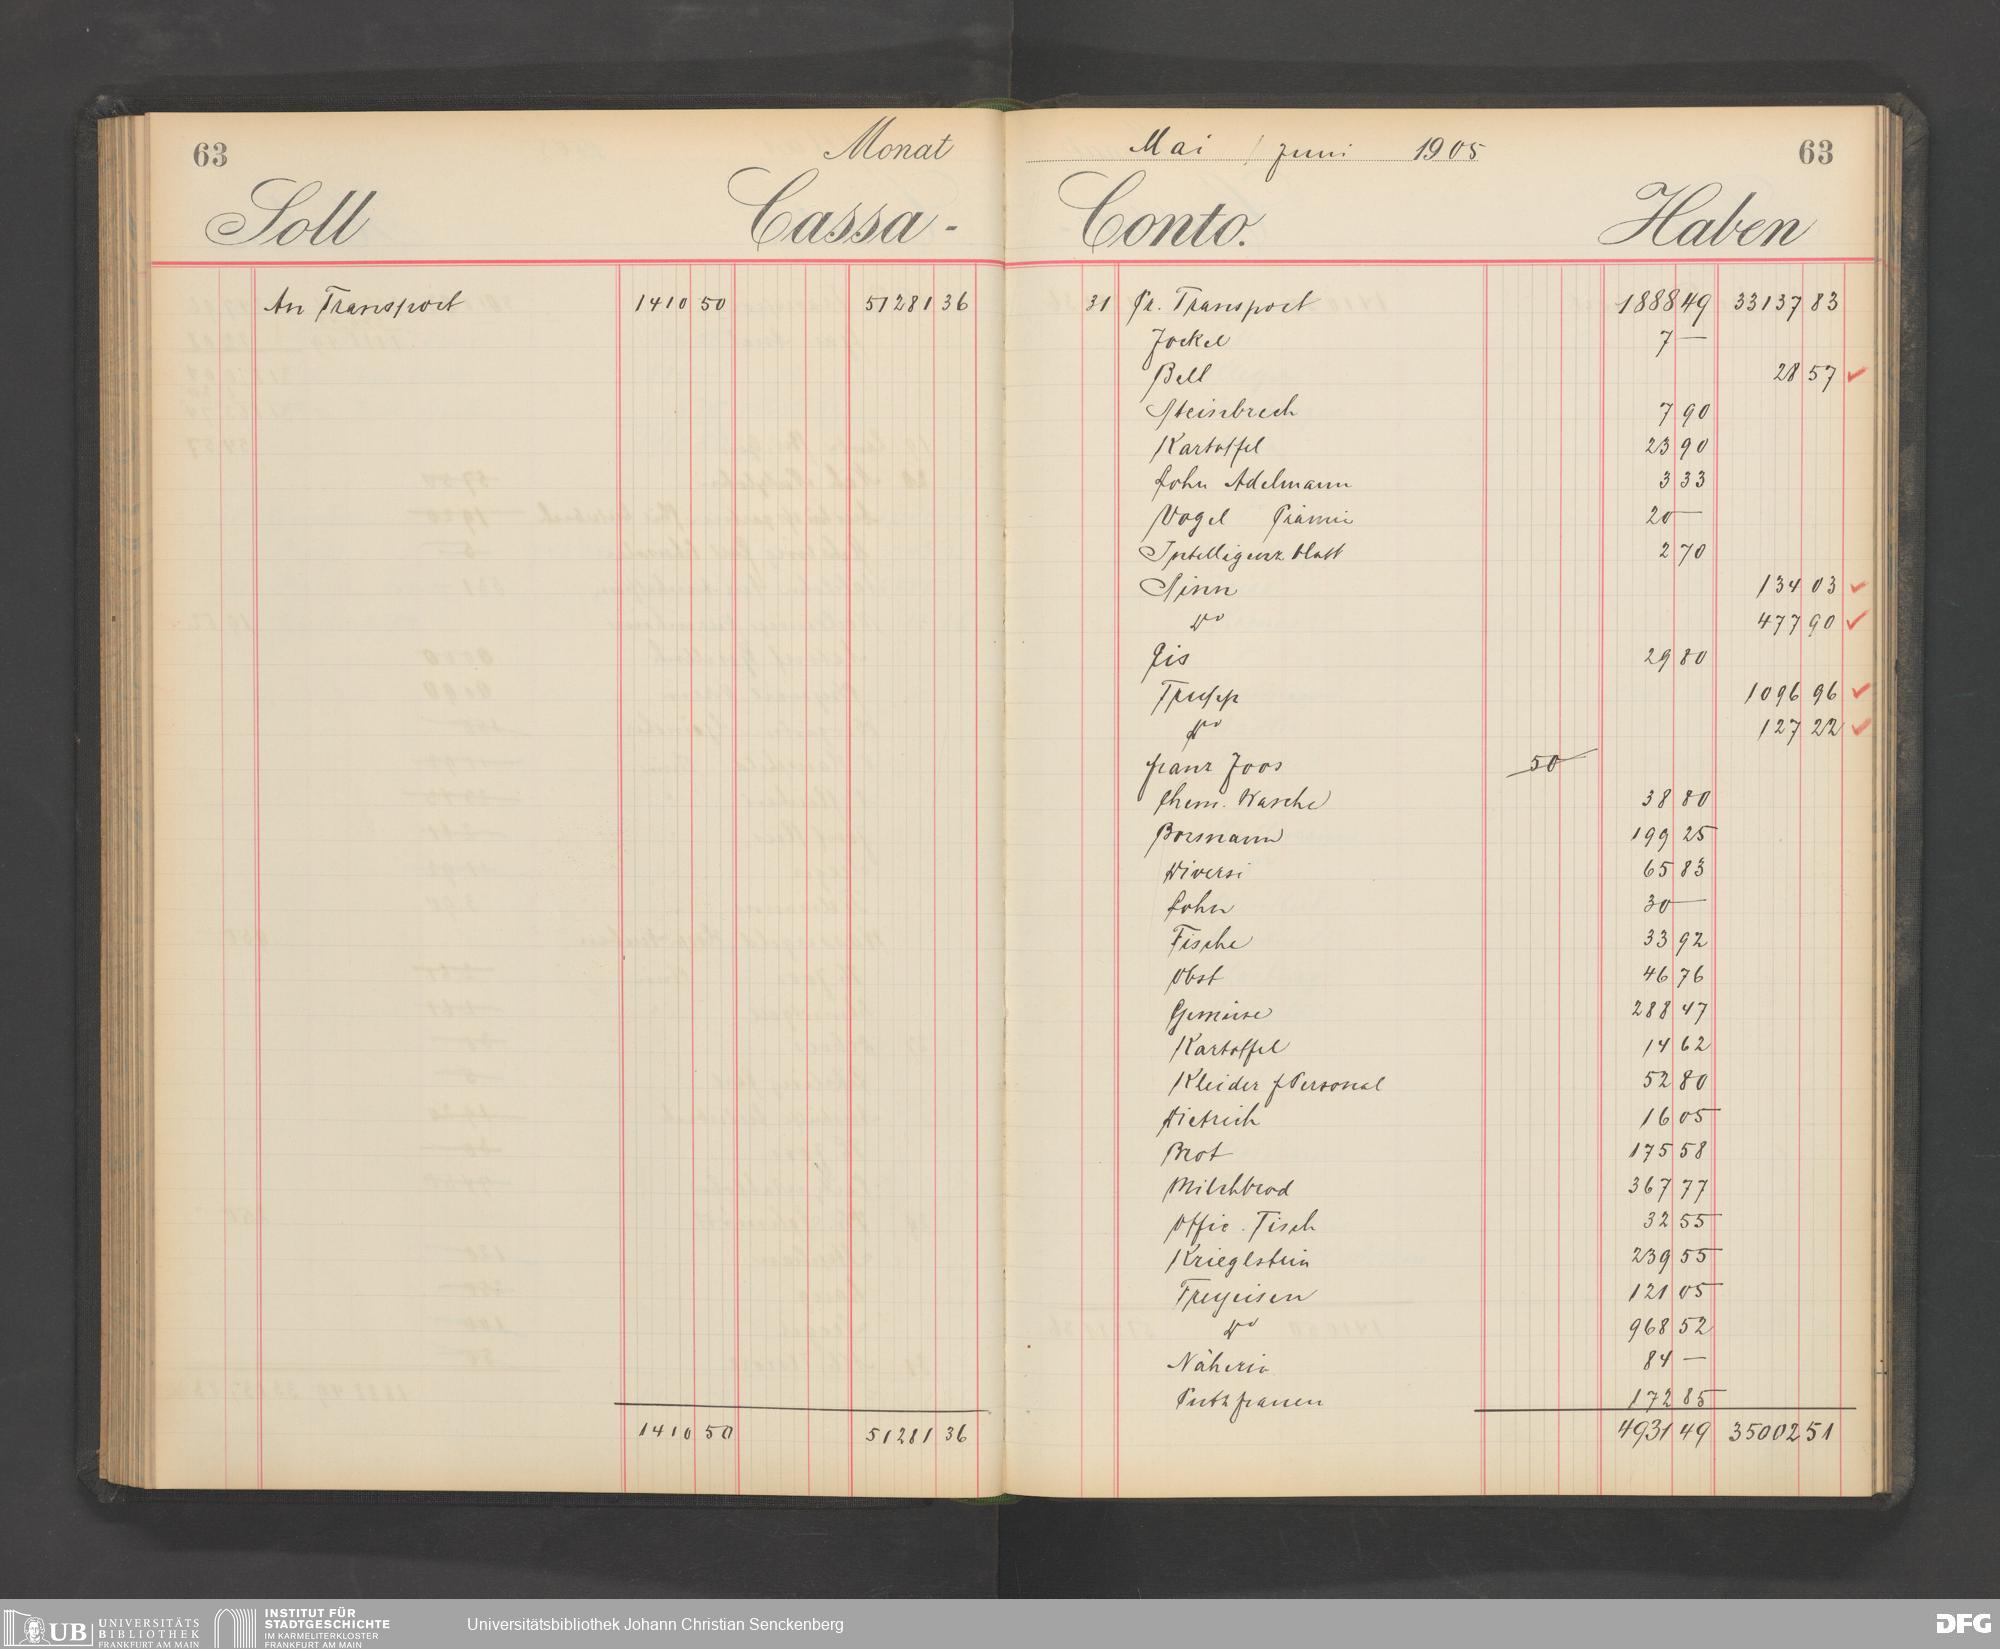 63 Monat Mai / Juni 1905 63
Soll Cassa - Conto. Haben
An Transport 1410 50 51281 36
31 Pr. Transport 1888 49 33137 83
Jockel 7 —
Bell 28 57
Steinbrech 7 90
Kartoffel 23 90
Lohn Adelmann 3 33
Vogel Prämie 20 —
Intelligenzblatt 2 70
Sinn 134 03
do 477 90
Eis 29 80
Trupp 1096 96
do 127 22
Franz Joos 50
Chem. Wäsche 38 80
Bormann 199 25
Diversi 65 83
Lohn 30 —
Fische 33 92
Obst 46 76
Gemüse 288 47
Kartoffel 14 62
Kleider f Personal 52 80
Dietrich 16 05
Brot 175 58
Milchbrod 367 77
Offic. Tisch 32 55
Krieglstein 239 55
Freyeisen 121 05
do 968 52
Näherin 84 —
Putzfrauen 172 85
1410 50 51281 36
4931 49 35002 51
UB UNIVERSITÄTS
BIBLIOTHEK
FRANKFURT AM MAIN
INSTITUT FÜR
STADTGESCHICHTE
IM KARMELITERKLOSTER
FRANKFURT AM MAIN
Universitätsbibliothek Johann Christian Senckenberg
DFG